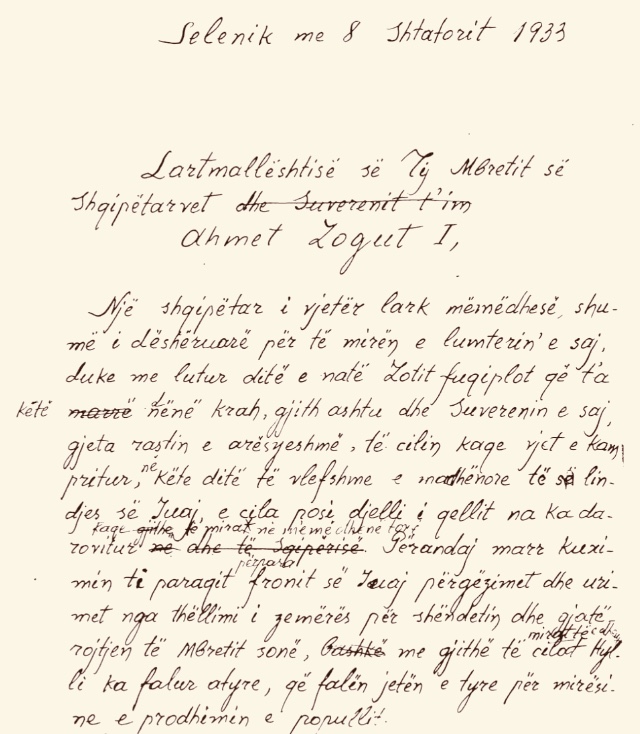 Selenik me 8 Shtatorit 1933
Lartmallështisë së Tij Mbretit së
Shqipëtarvet dhe Suverenit t'im
Ahmet Zogut I,
Një shqipëtar i vjetër lark mëmëdhesë, shu-
më i dëshëruarë për të mirën e lumterin' e saj,
duke me lutur ditë e natë Zotit fuqiplot që t'a
këtë marrë nënë krah, gjith ashtu dhe Suverenin e saj,
gjeta rastin e arësyeshmë, të cilin kaqe vjet e kam
pritur, në këte ditë të vlefshme e madhënore të së lin-
djes së Juaj, e cila posi djelli i qellit na ka da-
kaqe gjithe të mirat në mëmëdhenë
rovitur në dhe të Sqiperisë. Përandaj marr kuxi-
përpara
min ti paraqit fronit së Juaj përgëzimet dhe uri-
met nga thëllimi i zemërës për shëndetin dhe gjatë
rojtjen të Mbretit sonë, bashkë me gjithë të cilat Hyl-
li ka falur atyre, që falën jetën e tyre për mirësi-
ne e prodhimin e popullit.